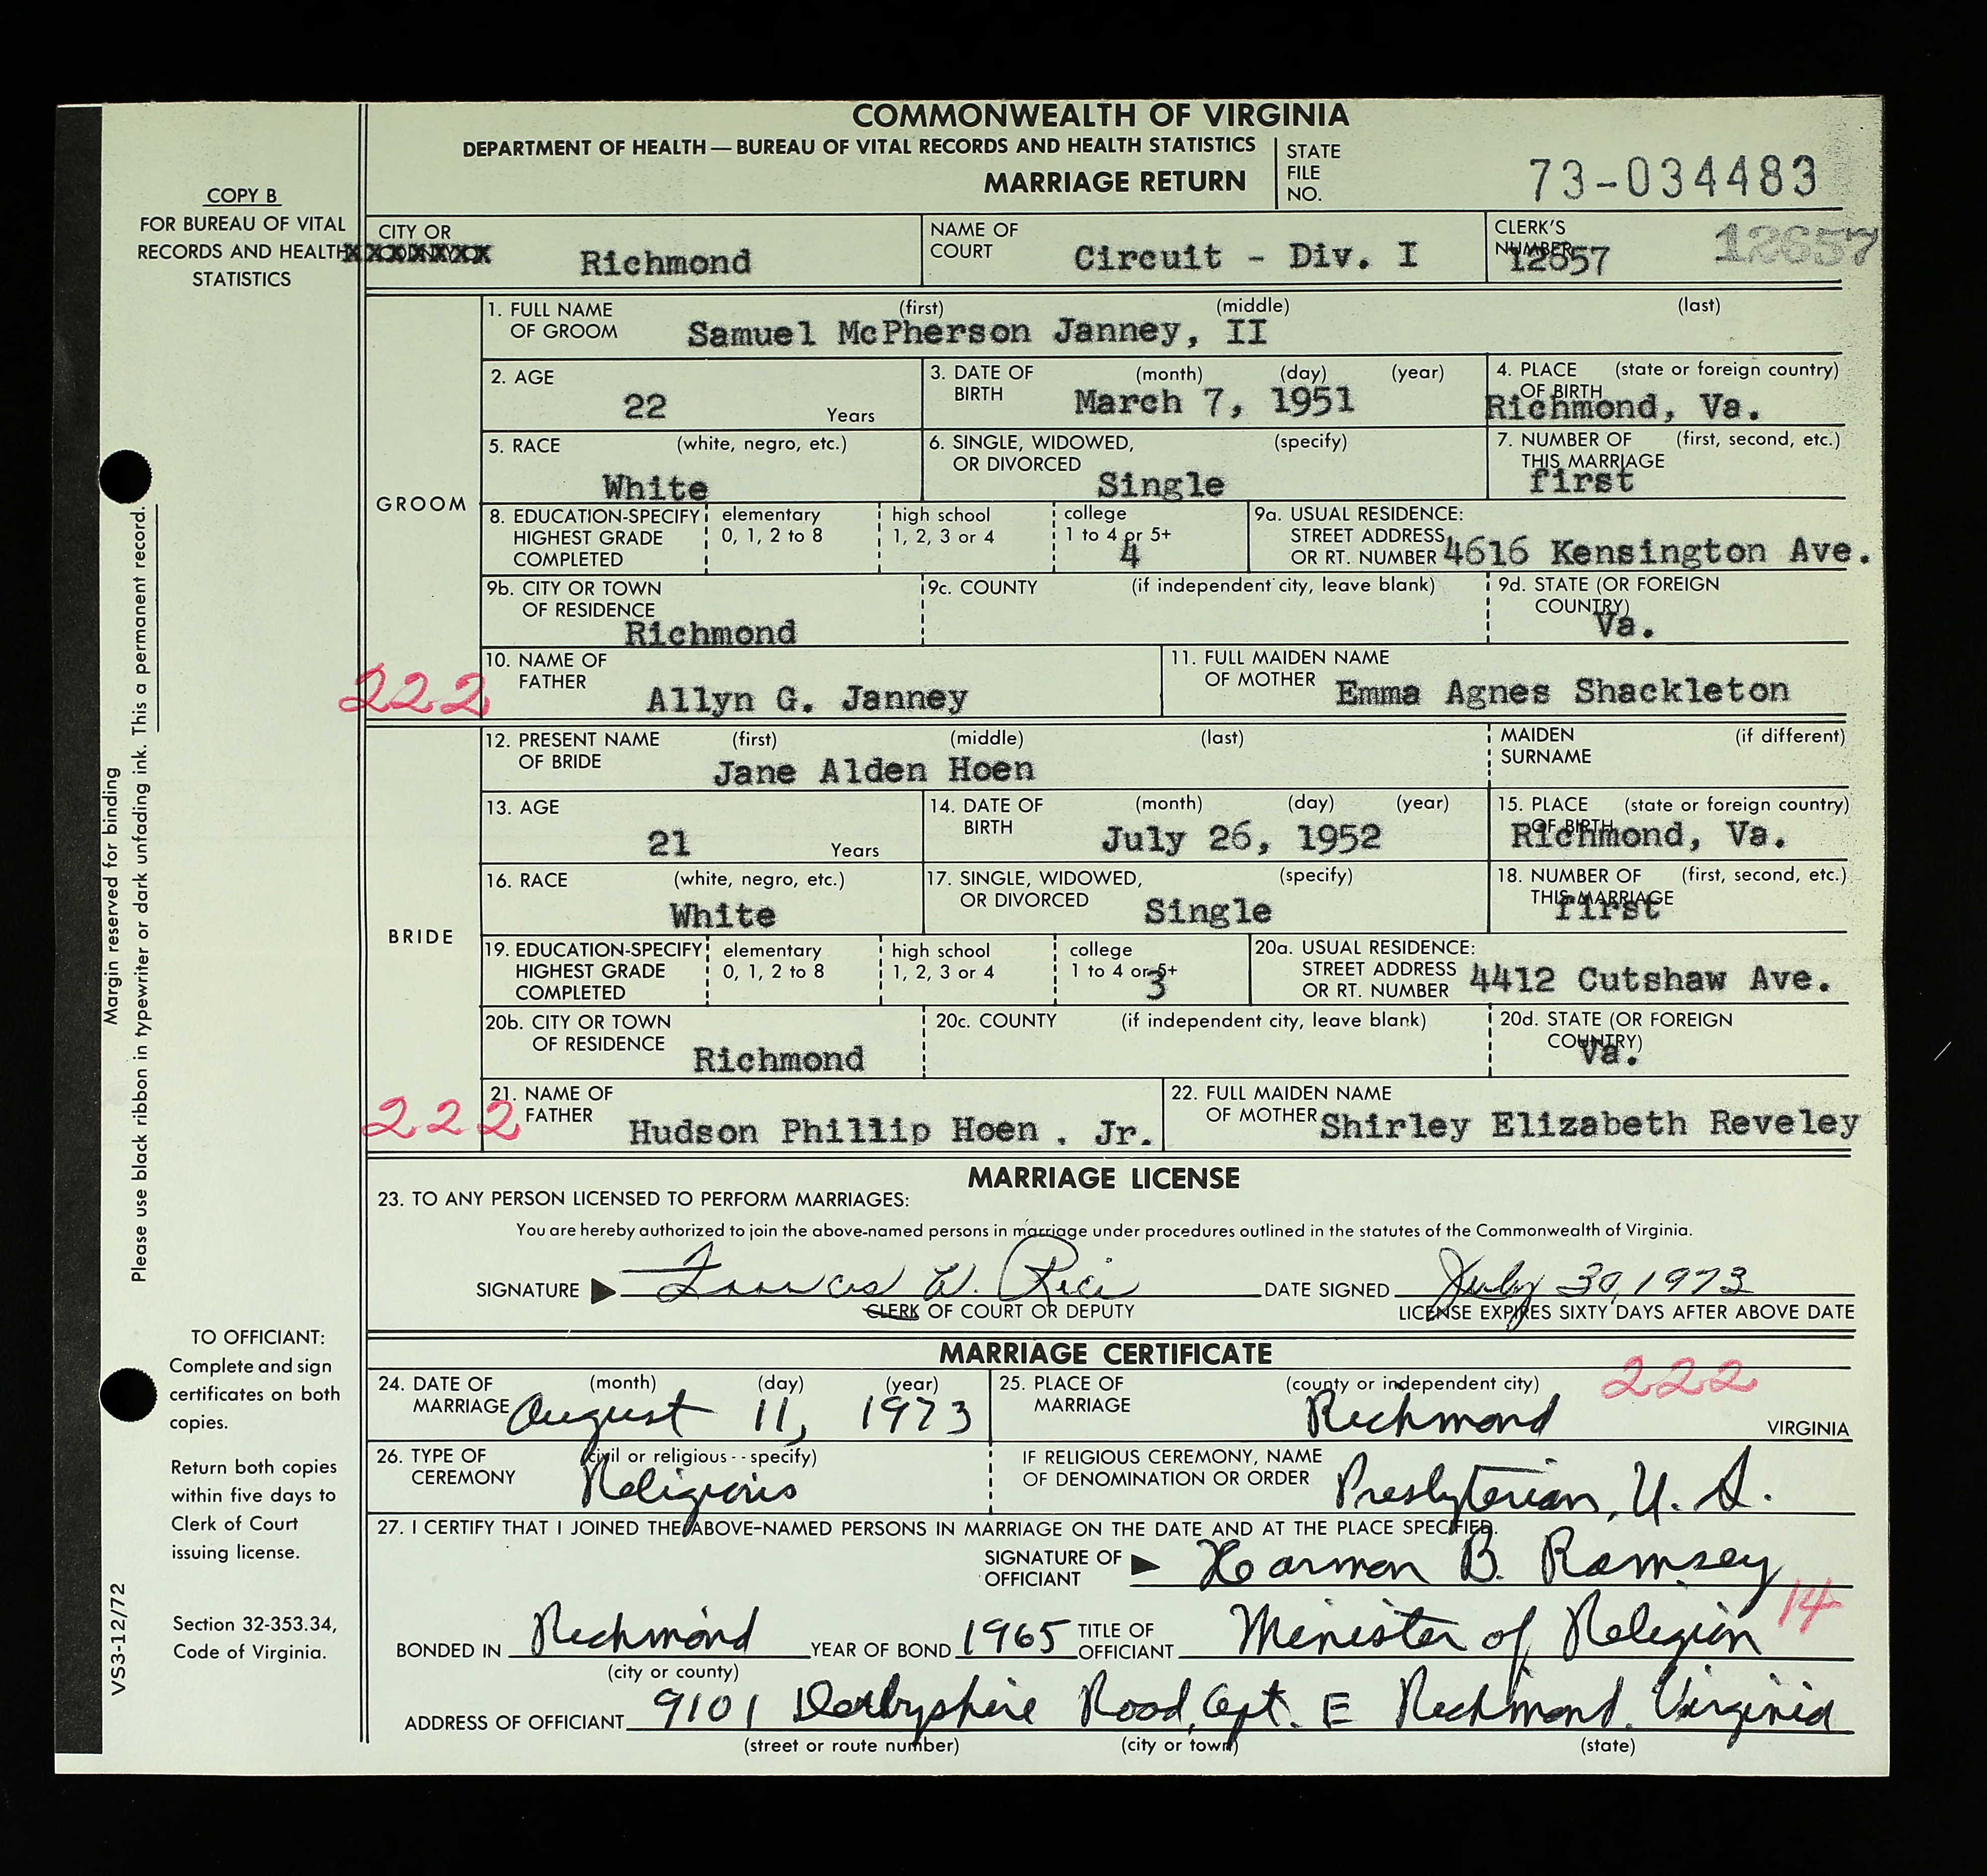 COMMONWEALTH OF VIRGINIA
DEPARTMENT OF HEALTH — BUREAU OF VITAL RECORDS AND HEALTH STATISTICS
MARRIAGE RETURN
STATE FILE NO. 73-034483
COPY B
FOR BUREAU OF VITAL
RECORDS AND HEALTH
STATISTICS
CITY OR XXXXXXX Richmond
NAME OF COURT Circuit - Div. I
CLERK'S NUMBER 12657 12657
GROOM
1. FULL NAME OF GROOM (first) (middle) (last)
Samuel McPherson Janney, II
2. AGE 22 Years
3. DATE OF BIRTH (month) (day) (year) March 7, 1951
4. PLACE OF BIRTH (state or foreign country) Richmond, Va.
5. RACE (white, negro, etc.) White
6. SINGLE, WIDOWED, OR DIVORCED (specify) Single
7. NUMBER OF THIS MARRIAGE (first, second, etc.) first
8. EDUCATION-SPECIFY HIGHEST GRADE COMPLETED elementary 0, 1, 2 to 8 high school 1, 2, 3 or 4 college 1 to 4 or 5+ 4
9a. USUAL RESIDENCE: STREET ADDRESS OR RT. NUMBER 4616 Kensington Ave.
9b. CITY OR TOWN OF RESIDENCE Richmond
9c. COUNTY (if independent city, leave blank)
9d. STATE (OR FOREIGN COUNTRY) Va.
222
10. NAME OF FATHER Allyn G. Janney
11. FULL MAIDEN NAME OF MOTHER Emma Agnes Shackleton
BRIDE
12. PRESENT NAME OF BRIDE (first) (middle) (last) Jane Alden Hoen
MAIDEN SURNAME (if different)
13. AGE 21 Years
14. DATE OF BIRTH (month) (day) (year) July 26, 1952
15. PLACE OF BIRTH (state or foreign country) Richmond, Va.
16. RACE (white, negro, etc.) White
17. SINGLE, WIDOWED, OR DIVORCED (specify) Single
18. NUMBER OF THIS MARRIAGE (first, second, etc.) first
19. EDUCATION-SPECIFY HIGHEST GRADE COMPLETED elementary 0, 1, 2 to 8 high school 1, 2, 3 or 4 college 1 to 4 or 5+ 3
20a. USUAL RESIDENCE: STREET ADDRESS OR RT. NUMBER 4412 Cutshaw Ave.
20b. CITY OR TOWN OF RESIDENCE Richmond
20c. COUNTY (if independent city, leave blank)
20d. STATE (OR FOREIGN COUNTRY) Va.
222
21. NAME OF FATHER Hudson Phillip Hoen . Jr.
22. FULL MAIDEN NAME OF MOTHER Shirley Elizabeth Reveley
MARRIAGE LICENSE
23. TO ANY PERSON LICENSED TO PERFORM MARRIAGES:
You are hereby authorized to join the above-named persons in marriage under procedures outlined in the statutes of the Commonwealth of Virginia.
SIGNATURE Frances W. Rice DATE SIGNED July 30, 1973
CLERK OF COURT OR DEPUTY LICENSE EXPIRES SIXTY DAYS AFTER ABOVE DATE
MARRIAGE CERTIFICATE
24. DATE OF MARRIAGE (month) (day) (year) August 11, 1973
25. PLACE OF MARRIAGE (county or independent city) Richmond VIRGINIA
222
26. TYPE OF CEREMONY (civil or religious -- specify) Religious
IF RELIGIOUS CEREMONY, NAME OF DENOMINATION OR ORDER Presbyterian, U. S.
27. I CERTIFY THAT I JOINED THE ABOVE-NAMED PERSONS IN MARRIAGE ON THE DATE AND AT THE PLACE SPECIFIED.
SIGNATURE OF OFFICIANT Harmon B. Ramsey
14
BONDED IN Richmond YEAR OF BOND 1965 TITLE OF OFFICIANT Minister of Religion
(city or county)
ADDRESS OF OFFICIANT 9101 Derbyshire Road, Apt. E Richmond, Virginia
(street or route number) (city or town) (state)
Margin reserved for binding
Please use black ribbon in typewriter or dark unfading ink. This a permanent record.
TO OFFICIANT:
Complete and sign
certificates on both
copies.
Return both copies
within five days to
Clerk of Court
issuing license.
Section 32-353.34,
Code of Virginia.
VS3-12/72